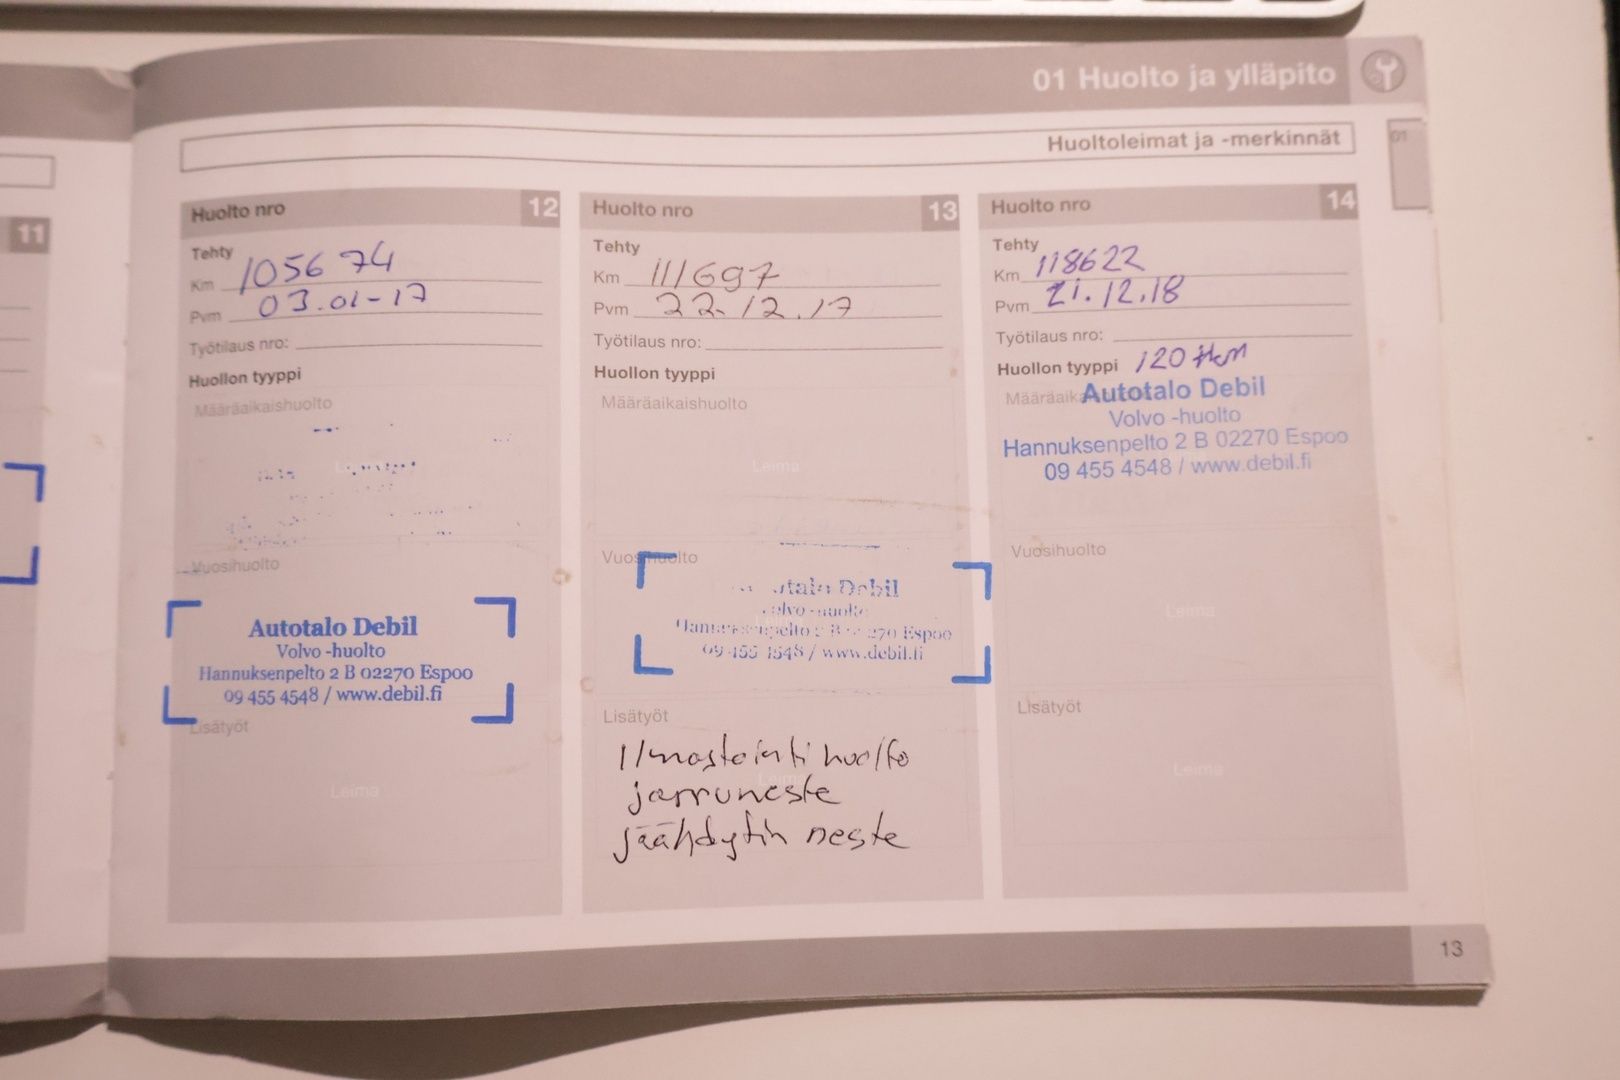 01 Huolto ja ylläpito
Huoltoleimat ja -merkinnät
01
11
Huolto nro 12
Tehty
Km 105674
Pvm 03.01-17
Työtilaus nro:
Huollon tyyppi
Määräaikaishuolto
Vuosihuolto
Autotalo Debil
Volvo -huolto
Hannuksenpelto 2 B 02270 Espoo
09 455 4548 / www.debil.fi
Lisätyöt
Leima
Huolto nro 13
Tehty
Km 111697
Pvm 22.12.17
Työtilaus nro:
Huollon tyyppi
Määräaikaishuolto
Leima
Vuosihuolto
Debil
Espoo
09 455 4548 / www.debil.fi
Lisätyöt
Ilmastointi huolto
Leima
jarruneste
jäähdytin neste
Huolto nro 14
Tehty
Km 118622
Pvm 21.12.18
Työtilaus nro:
Huollon tyyppi 120 tkm
Autotalo Debil
Volvo -huolto
Hannuksenpelto 2 B 02270 Espoo
09 455 4548 / www.debil.fi
Vuosihuolto
Leima
Lisätyöt
Leima
13